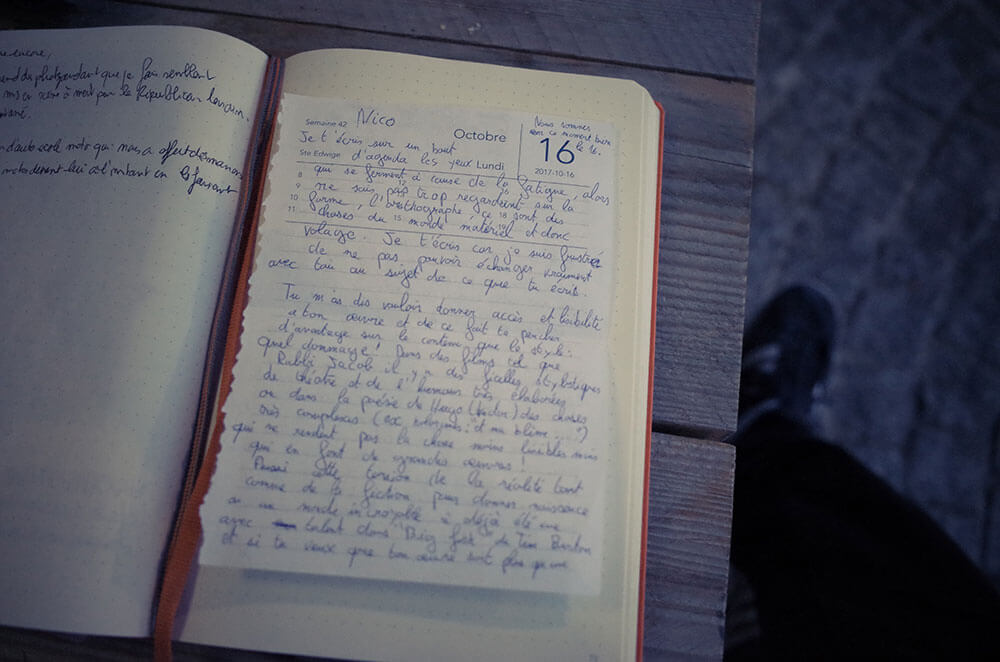 encore,
photo pendant que je fais semblant
en scène à mort par le Républicain Lorrain.
d'auto école moto qui nous a offert
en le faisant
Semaine 42
Nico
Octobre
Nous sommes
en ce moment bien
le 16.
16
2017-10-16
Je t'écris sur un bout
Ste Edwige d'agenda les yeux Lundi
8 qui se ferment à cause de la fatigue, alors
9 ne sois pas trop regardant sur la
10 forme, l'orthographe, ce sont des
11 choses du 15 monde matériel et donc
volage. Je t'écris car je suis frustré
de ne pas pouvoir échanger vraiment
avec toi au sujet de ce que tu écris.
Tu m'as dis vouloir donner accès et lisibilité
a ton œuvre et de ce fait te pencher
d'avantage sur le contenu que le style:
quel dommage! Dans des films tel que
Rabbi Jacob il y a des ficelles stylistiques
de théâtre et de l'humour très élaborées
ou dans la poésie de Hugo (Victor) des choses
très complexes (ex
qui ne rendent pas la chose moins lisibles mais
qui en font de grandes œuvres!
Aussi cette torsion de la réalité tout
comme de la fiction pour donner naissance
a un monde incroyable a déjà été vue
avec talent dans "Big fish" de Tim Burton
et si tu veux que ton œuvre soit plus qu'une